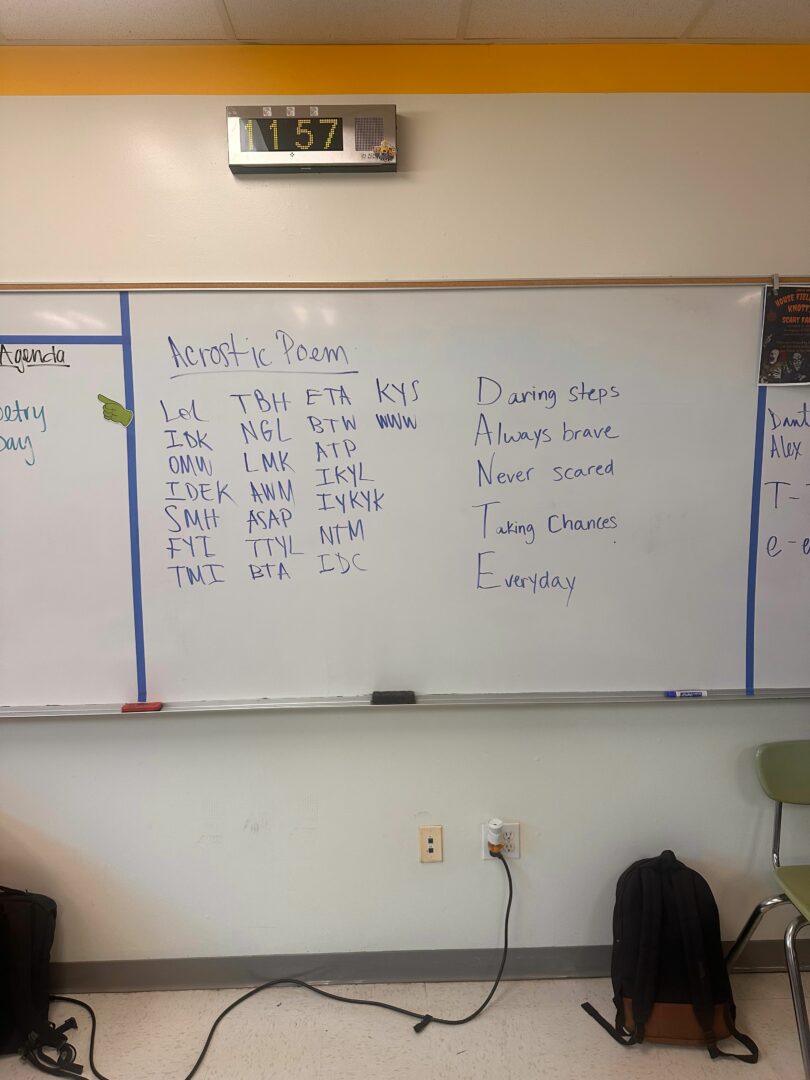 11 57
Agenda
Acrostic Poem
Lol TBH ETA KYS
IDK NGL BTW WWW
OMW LMK ATP
IDEK AWM IKYL
SMH ASAP IYKYK
FYI TTYL NTM
TMI BTA IDC
Daring steps
Always brave
Never scared
Taking Chances
Everyday
HOUSE
KNOTT
SCARY
Alex
T-
e-e